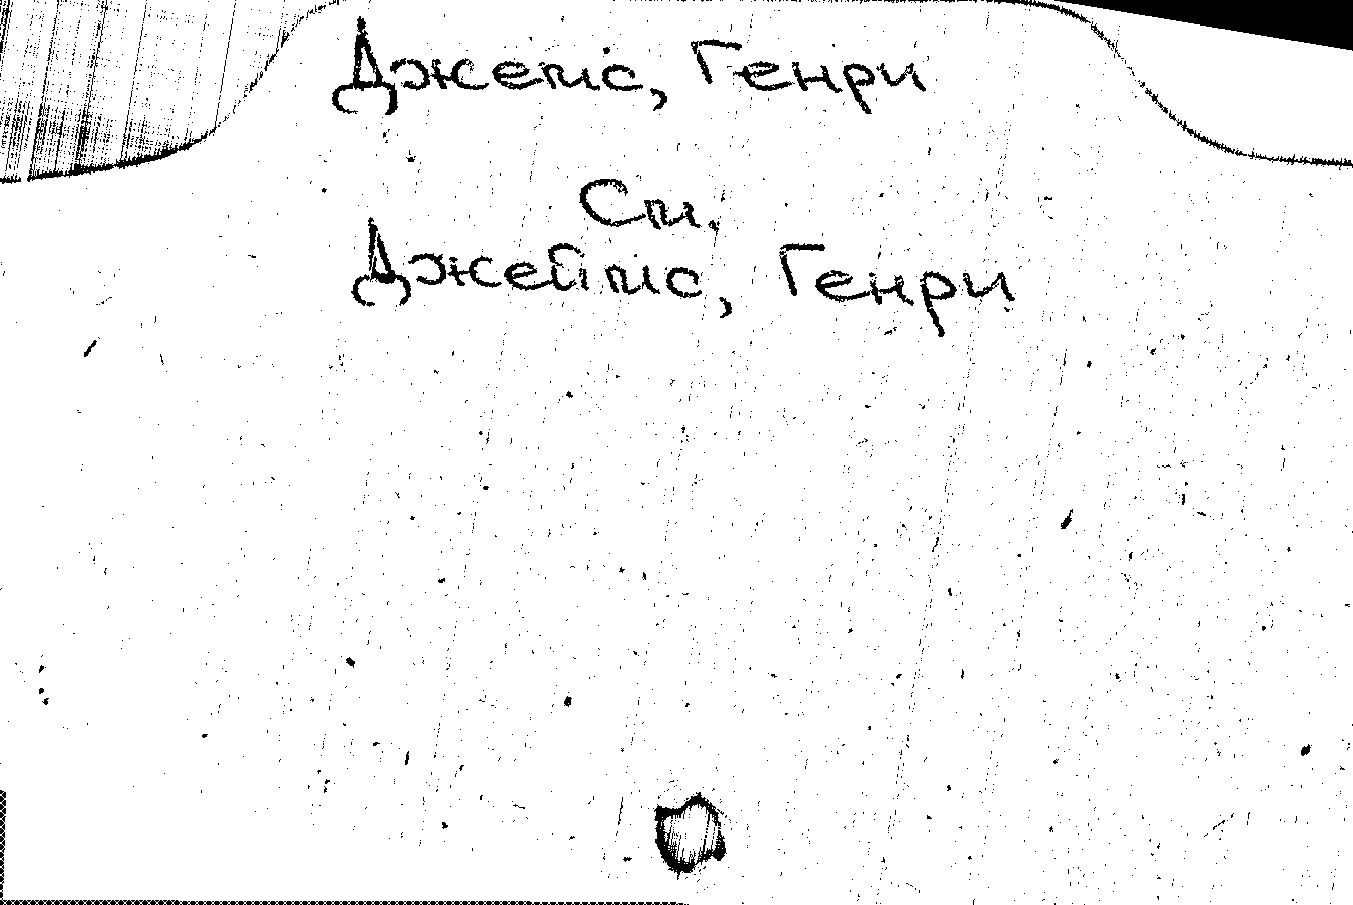 Джемс, Генри
См.
Джеймс, Генри